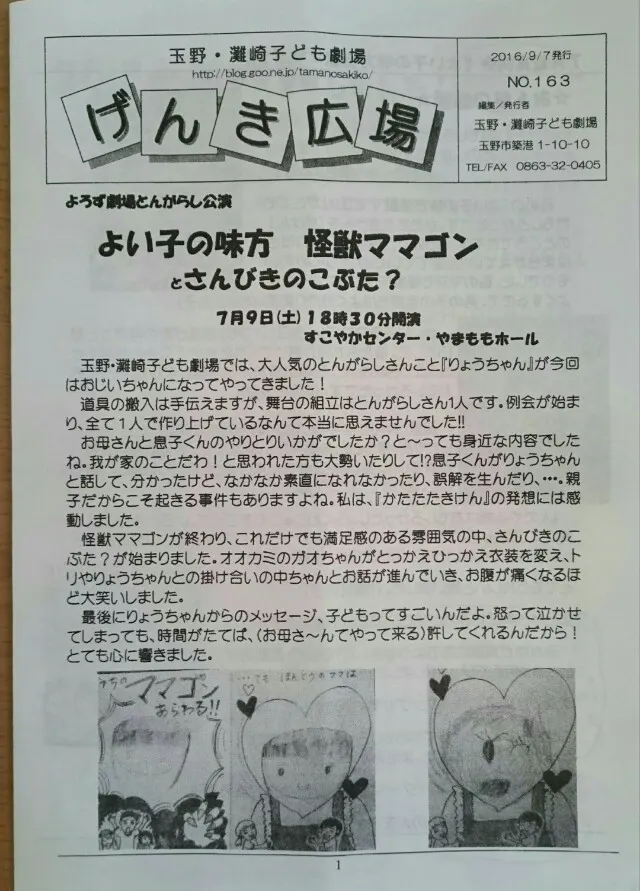 玉野・灘崎子ども劇場
http://blog.goo.ne.jp/tamanosakiko/
げんき広場
2016/9/7発行
NO.163
編集／発行者
玉野・灘崎子ども劇場
玉野市築港1-10-10
TEL/FAX 0863-32-0405
よろず劇場とんがらし公演
よい子の味方 怪獣ママゴン
とさんびきのこぶた？
7月9日(土)18時30分開演
すこやかセンター・やまももホール
玉野・灘崎子ども劇場では、大人気のとんがらしさんこと『りょうちゃん』が今回
はおじいちゃんになってやってきました！
道具の搬入は手伝えますが、舞台の組立はとんがらしさん1人です。例会が始ま
り、全て1人で作り上げているなんて本当に思えませんでした!!
お母さんと息子くんのやりとりいかがでしたか？と～っても身近な内容でした
ね。我が家のことだわ！と思われた方も大勢いたりして!?息子くんがりょうちゃん
と話して、分かったけど、なかなか素直になれなかったり、誤解を生んだり、…。親
子だからこそ起きる事件もありますよね。私は、『かたたたきけん』の発想には感
動しました。
怪獣ママゴンが終わり、これだけでも満足感のある雰囲気の中、さんびきのこ
ぶた？が始まりました。オオカミのガオちゃんがとっかえひっかえ衣装を変え、ト
リやりょうちゃんとの掛け合いの中ちゃんとお話が進んでいき、お腹が痛くなるほ
ど大笑いしました。
最後にりょうちゃんからのメッセージ、子どもってすごいんだよ。怒って泣かせ
てしまっても、時間がたてば、(お母さ～んてやって来る)許してくれるんだから！
とても心に響きました。
うちの
ママゴン
あらわる!!
…でも ほんとうのママは
1